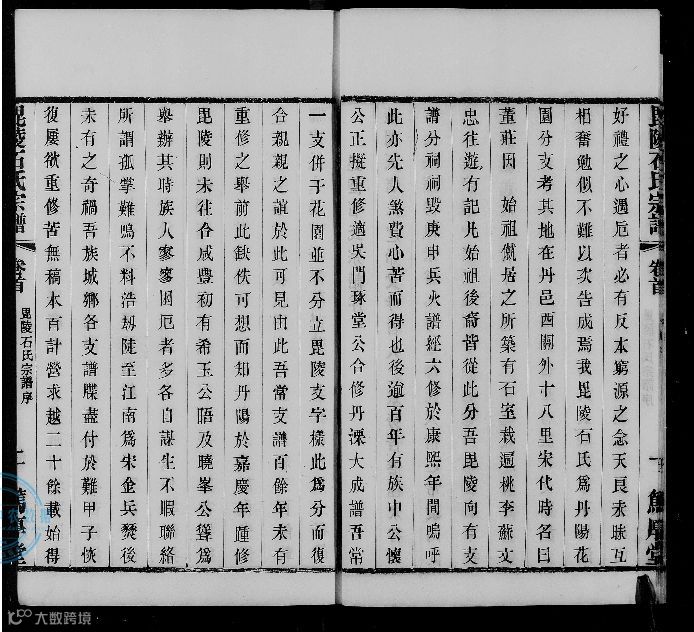 好禮之心遇厄者必有反本窮源之念天良未昧互
相奮勉似不難以次告成焉我毘陵石氏爲丹陽花
園分支考其地在丹邑西關外十八里宋代時名曰
董莊因 始祖僦居之所築有石室栽遍桃李蘇文
忠往遊有記凡始祖後裔皆從此分吾毘陵向有支
譜分祠祠毀庚申兵火譜經六修於康熙年間嗚呼
此亦先人煞費心苦而得也後逾百年有族中公懷
公正擬重修適吳門琢堂公合修丹溧大成譜吾常
一支併于花園並不分立毘陵支字樣此爲分而復
合親親之誼於此可見由此吾常支譜百餘年未有
重修之舉前此缺佚可想而知丹陽於嘉慶年踵修
毘陵則未往合咸豐初有希玉公晤及曉峯公聳爲
舉辦其時族人寥寥困厄者多各自謀生不暇聯絡
所謂孤掌難鳴不料浩刼陡至江南爲宋金兵燹後
未有之奇禍吾族城鄉各支譜牒盡付於難甲子恢
復屢欲重修苦無稿本百計營求越二十餘載始得
毘陵石氏宗譜 卷首 毘陵石氏宗譜序 二 篤厚堂
大数跨境